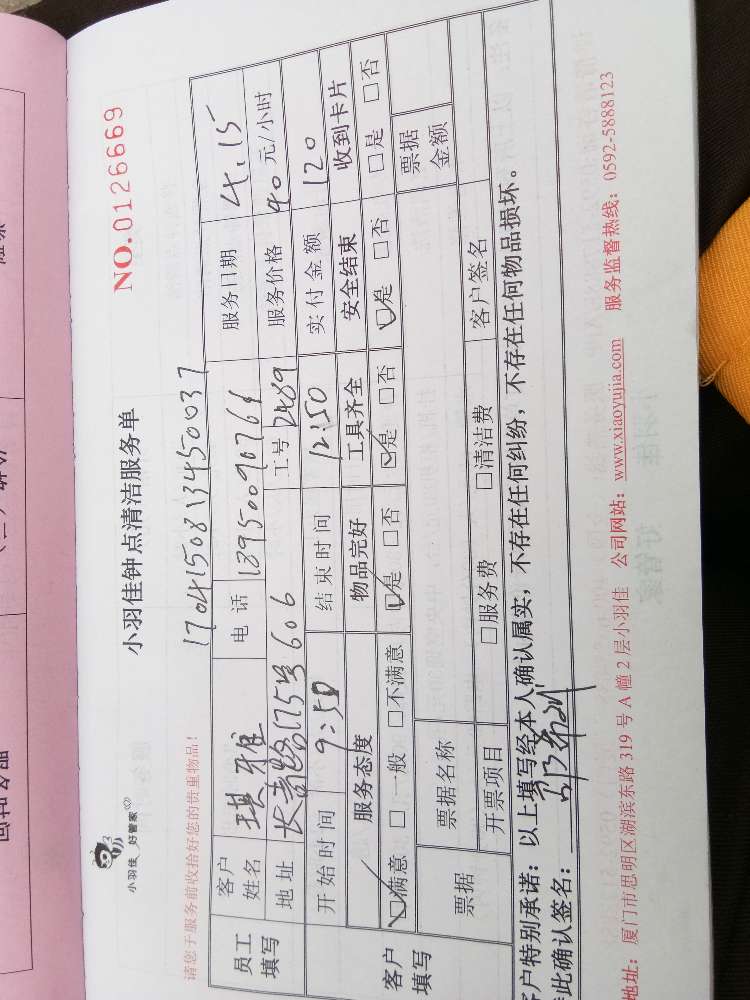 小羽佳 好管家
小羽佳钟点清洁服务单
NO.0126669
请您于服务前收拾好您的贵重物品!
17041508134500037
员工填写 客户姓名 琪雅 电话 13950090766 服务日期 4.15
地址 长青路175号606 工号 2489 服务价格 40元/小时
客户填写 开始时间 9:50 结束时间 12:50 实付金额 120
服务态度 物品完好 工具齐全 安全结束 收到卡片
☑满意 □一般 □不满意 ☑是 □否 ☑是 □否 ☑是 □否 □是 □否
票据 票据名称 票据金额
开票项目 □服务费 □清洁费 客户签名
客户特别承诺:以上填写经本人确认属实,不存在任何纠纷,不存在任何物品损坏。
此确认签名:
地址:厦门市思明区湖滨东路319号A幢2层小羽佳 公司网站:www.xiaoyujia.com 服务监督热线:0592-5888123